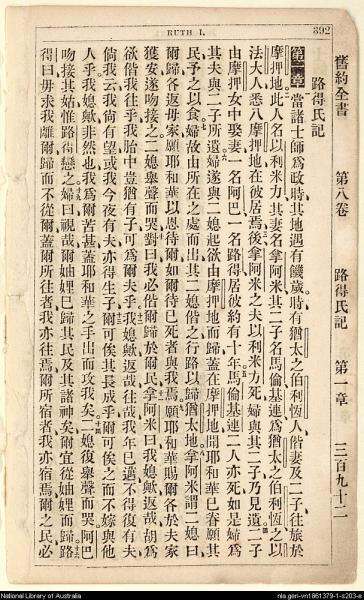 RUTH I.
392
舊約全書 第八卷 路得氏記 第一章 三百九十二
路得氏記
第一章 當諸士師為政時其地遇有饑歲時有猶太之伯利恆人偕妻及二子往旅於
摩押地此人名以利米力其妻名拿阿米其二子名馬倫基連為猶太之伯利恆之以
法大人悉入摩押地在彼居焉後拿阿米之夫以利米力死婦與其二子乃見遺二子
由摩押女中娶妻一名阿巴一名路得居彼約有十年馬倫基連二人亦死如是婦為
其夫與二子所遺婦遂與二媳起欲由摩押地而歸蓋在摩押地聞耶和華已眷顧其
民予之以食婦故由所在之處而出其二媳偕之行路以歸猶太地拿阿米謂二媳曰
爾歸各返毋家願耶和華以恩待爾如爾待已死者與我焉願耶和華賜爾各於夫家
獲安遂吻接之二媳舉聲而哭對曰我必偕爾歸於爾民拿阿米曰我媳歟返哉胡為
欲偕我往乎我胎中豈猶有子可為爾夫乎我媳歟返哉往哉我年已邁不得復有夫
倘我云我尚有望或我今夜有夫亦得生子爾可俟其長成乎爾可俟之而不嫁與他
人乎我媳歟非然也我為爾苦甚蓋耶和華之手出而攻我矣二媳復舉聲而哭阿巴
吻接其姑惟路得戀之婦曰視哉爾妯娌已歸其民及其諸神矣爾宜從妯娌而歸路
得曰毋求我離爾歸而不從爾蓋爾所往者我亦往焉爾所宿者我亦宿焉爾之民必
National Library of Australia
nla.gen-vn1861379-1-s203-e